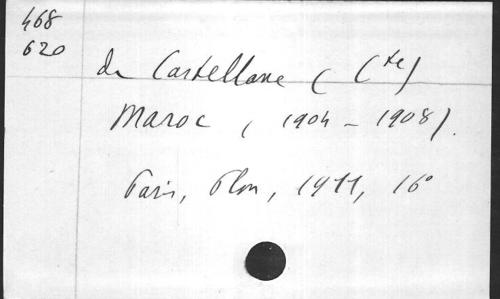 468
620
de Castellane (Cte)
Maroc (1904 - 1908).
Paris, Plon, 1911, 16°